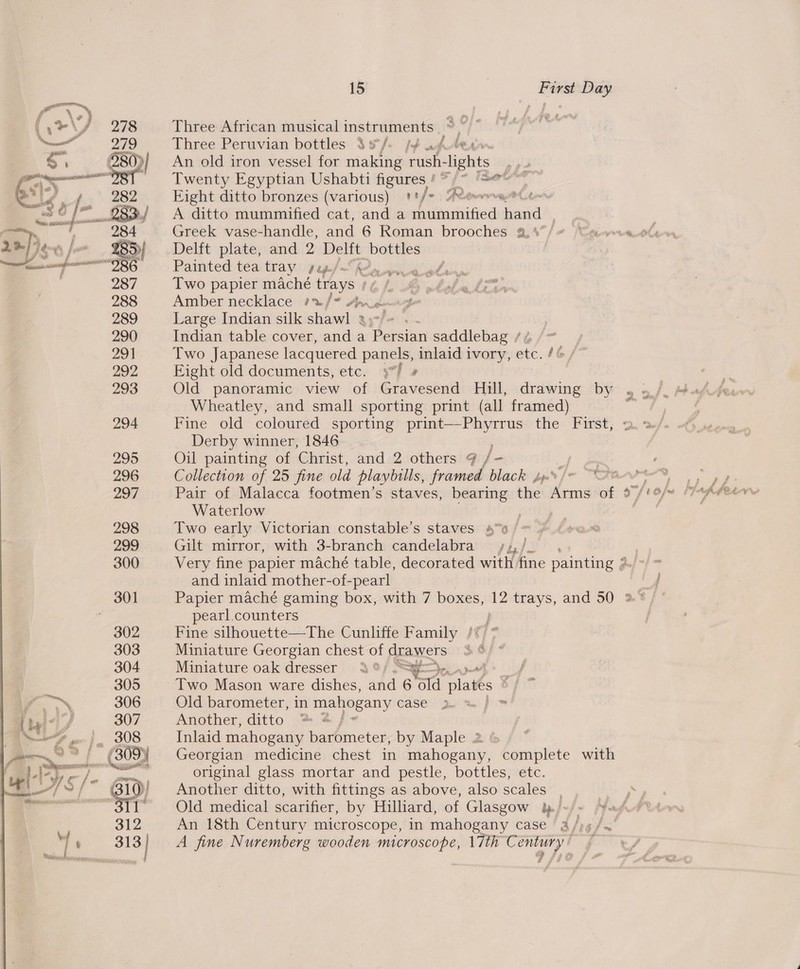 15 First Day
278 Three African musical instruments
279 Three Peruvian bottles
280 An old iron vessel for making rush-lights
281 Twenty Egyptian Ushabti figures
282 Eight ditto bronzes (various)
283 A ditto mummified cat, and a mummified hand
284 Greek vase-handle, and 6 Roman brooches
285 Delft plate, and 2 Delft bottles
286 Painted tea tray
287 Two papier maché trays
288 Amber necklace
289 Large Indian silk shawl
290 Indian table cover, and a Persian saddlebag
291 Two Japanese lacquered panels, inlaid ivory, etc.
292 Eight old documents, etc.
293 Old panoramic view of Gravesend Hill, drawing by
Wheatley, and small sporting print (all framed)
294 Fine old coloured sporting print—Phyrrus the First,
Derby winner, 1846
295 Oil painting of Christ, and 2 others
296 Collection of 25 fine old playbills, framed black
297 Pair of Malacca footmen's staves, bearing the Arms of
Waterlow
298 Two early Victorian constable's staves
299 Gilt mirror, with 3-branch candelabra
300 Very fine papier maché table, decorated with fine painting
and inlaid mother-of-pearl
301 Papier maché gaming box, with 7 boxes, 12 trays, and 50
pearl counters
302 Fine silhouette—The Cunliffe Family
303 Miniature Georgian chest of drawers
304 Miniature oak dresser
305 Two Mason ware dishes, and 6 old plates
306 Old barometer, in mahogany case
307 Another, ditto
308 Inlaid mahogany barometer, by Maple
309 Georgian medicine chest in mahogany, complete with
original glass mortar and pestle, bottles, etc.
310 Another ditto, with fittings as above, also scales
311 Old medical scarifier, by Hilliard, of Glasgow
312 An 18th Century microscope, in mahogany case
313 A fine Nuremberg wooden microscope, 17th Century